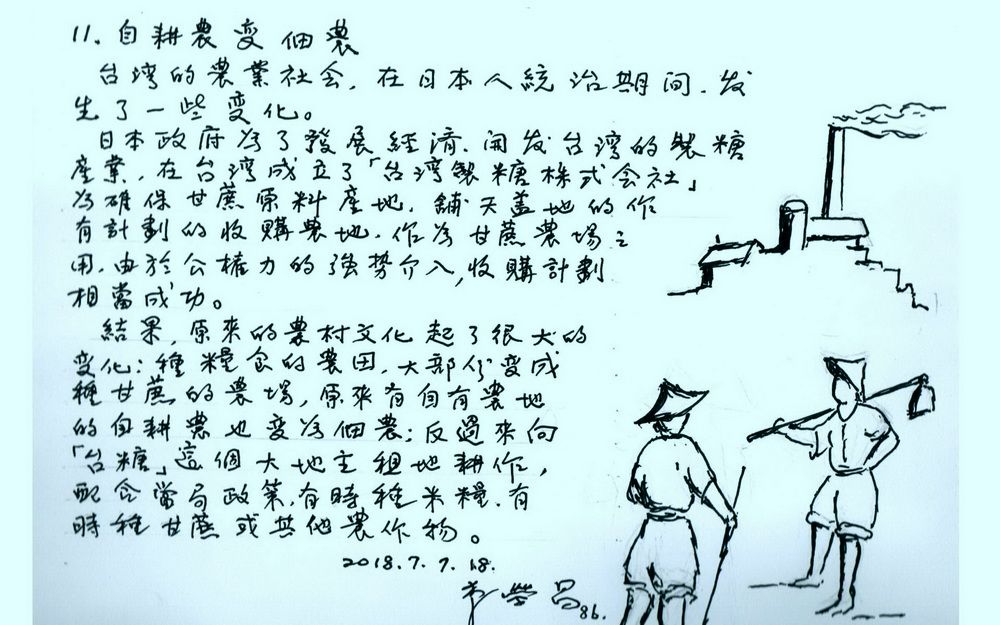 11. 自耕農变佃農
台湾的農業社会, 在日本人統治期间, 发
生了一些变化。
日本政府為了發展経済, 開发台湾的製糖
產業, 在台湾成立了「台湾製糖株式会社」
為確保甘蔗原料產地, 舖天盖地的作
有計劃的收購農地, 作為甘蔗農場之
用, 由於公権力的強势介入, 收購計劃
相當成功。
結果, 原來的農村文化起了很大的
变化: 種糧食的農田, 大部份变成
種甘蔗的農場, 原來有自有農地
的自耕農也变為佃農; 反過來向
「台糖」這個大地主租地耕作,
配合當局政策, 有時種米糧, 有
時種甘蔗或其他農作物。
2018.7.7.
榮昌 86.